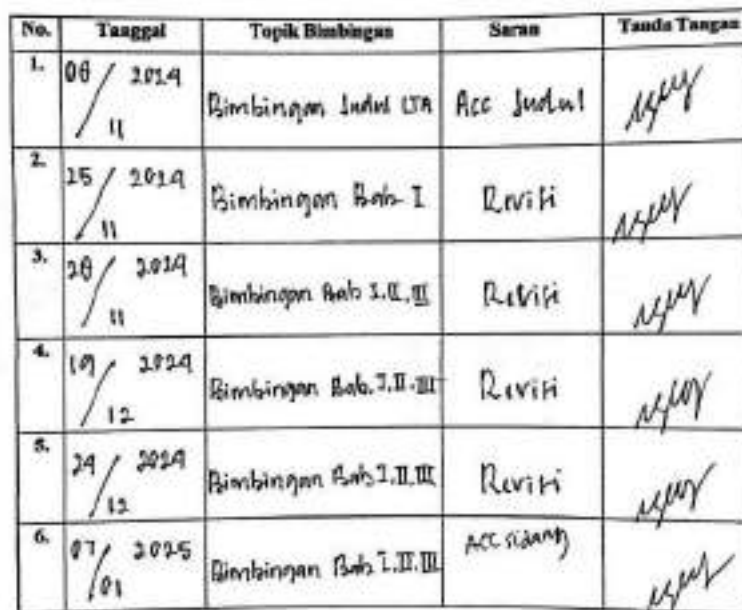 No. Tanggal Topik Bimbingan Saran Tanda Tangan
1. 06/11 2024 Bimbingan Judul LTA Acc Judul
2. 25/11 2024 Bimbingan Bab I Revisi
3. 28/11 2024 Bimbingan Bab I, II, III Revisi
4. 19/12 2024 Bimbingan Bab. I, II. III Revisi
5. 24/12 2024 Bimbingan Bab I, II, III Revisi
6. 07/01 2025 Bimbingan Bab I, II, III ACC sidang